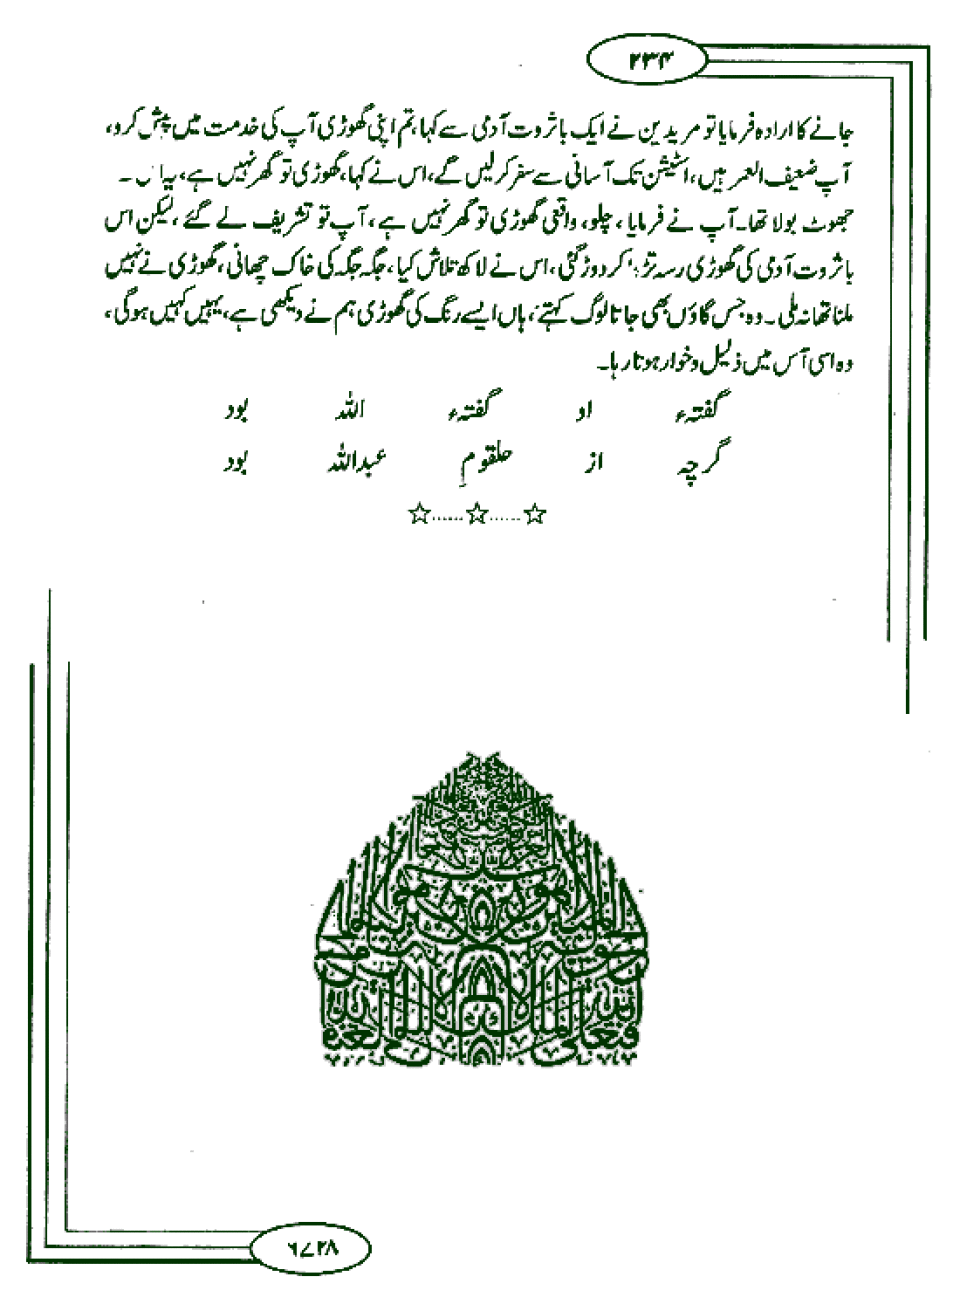 ۲۳۴
جانے کا ارادہ فرمایا تو مریدین نے ایک با ثروت آدمی سے کہا، تم اپنی گھوڑی آپ کی خدمت میں پیش کرو،
آپ ضعیف العمر ہیں، اسٹیشن تک آسانی سے سفر کر لیں گے، اس نے کہا، گھوڑی تو گھر نہیں ہے،
جھوٹ بولا تھا۔ آپ نے فرمایا، چلو، واقعی گھوڑی تو گھر نہیں ہے، آپ تو تشریف لے گئے، لیکن اس
با ثروت آدمی کی گھوڑی رسہ تڑا کر دوڑ گئی، اس نے لاکھ تلاش کیا، جگہ جگہ کی خاک چھانی، گھوڑی نے نہیں
ملنا تھا نہ ملی۔ وہ جس گاؤں بھی جاتا لوگ کہتے، ہاں ایسے رنگ کی گھوڑی ہم نے دیکھی ہے، یہیں کہیں ہو گی،
وہ اسی آس میں ذلیل و خوار ہوتا رہا۔
گفتہء او گفتہء اللہ بود
گرچہ از حلقومِ عبداللہ بود
☆......☆......☆
۶۷۲۸